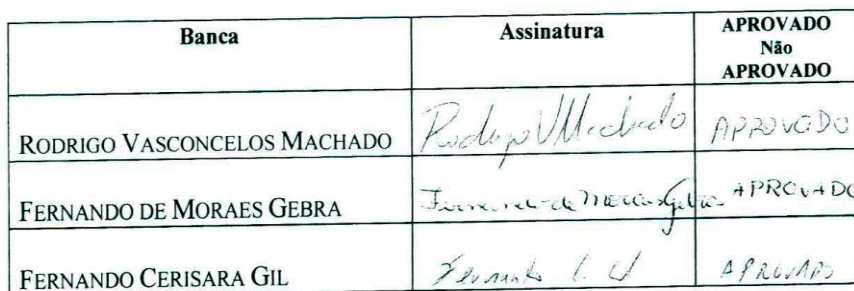 Banca Assinatura APROVADO
Não
APROVADO
RODRIGO VASCONCELOS MACHADO Rodrigo V Machado APROVADO
FERNANDO DE MORAES GEBRA Fernando de Moraes Gebra APROVADO
FERNANDO CERISARA GIL Fernando C. Gil APROVADO